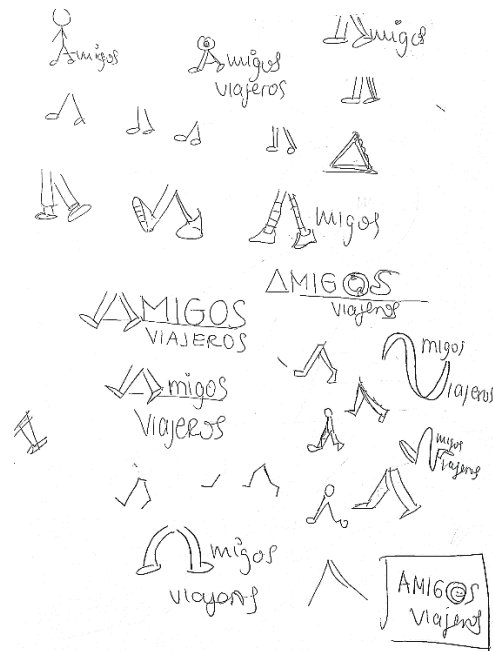 Amigos
Amigos
viajeros
migos
Amigos
AMIGOS
viajeros
AMIGOS
VIAJEROS
migos
viajeros
Amigos
VIAJEROS
migos
viajeros
migos
AMIGOS
viajeros